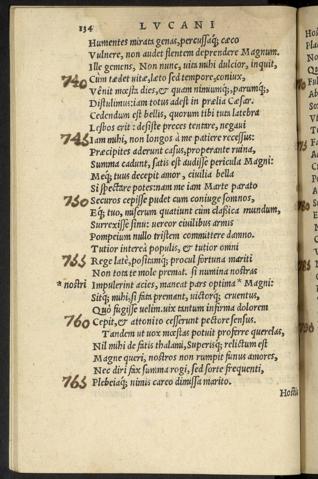 134 LVCANI
Humentes mirata genas, percussaq; cæco
Vulnere, non audet flentem deprendere Magnum.
Ille gemens, Non nunc, uita mihi dulcior, inquit,
740 Cum tædet uitæ, læto sed tempore, coniux,
Vênit mœsta dies, & quam nimiumq;, parumq;,
Distulimus: iam totus adest in prælia Cæsar.
Cedendum est bellis, quorum tibi tuta latebra
Lesbos erit: desiste preces tentare, negaui
745 Iam mihi, non longos à me patiere recessus:
Præcipites aderunt casus, properante ruina,
Summa cadunt, satis est audisse pericula Magni:
Meq; tuus decepit amor, ciuilia bella
Si spectare potes: nam me iam Marte parato
750 Securos cepisse pudet cum coniuge somnos,
Eq; tuo, miserum quatiunt cùm classica mundum,
Surrexisse sinu: uereor ciuilibus armis
Pompeium nullo tristem committere damno.
Tutior intereà populis, & tutior omni
755 Rege latè, positamq; procul fortuna mariti
Non tota te mole premat. si numina nostras
* nostri Impulerint acies, maneat pars optima * Magni:
Sitq; mihi, si fata premant, uictorq; cruentus,
Quò fugisse uelim. uix tantum infirma dolorem
760 Cepit, & attonito cesserunt pectore sensus.
Tandem ut uox mœstas potuit proferre querelas,
Nil mihi de fatis thalami, Superisq; relictum est
Magne queri, nostros non rumpit funus amores,
Nec diri fax summa rogi, sed sorte frequenti,
765 Plebeiaq; nimis careo dimissa marito.
Hostis